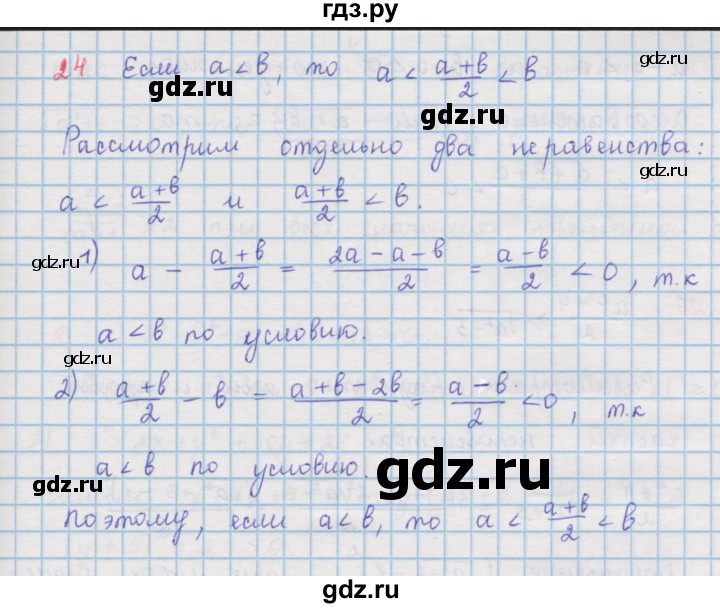 гдз.ру
24 Если a < b, то a < (a+b)/2 < b
gdz.ru
gdz.ru
gdz.ru
Рассмотрим отдельно два неравенства:
a < (a+b)/2 и (a+b)/2 < b.
gdz.ru
gdz.ru
1) a - (a+b)/2 = (2a-a-b)/2 = (a-b)/2 < 0, т.к
a < b по условию.
gdz.ru
2) (a+b)/2 - b = (a+b-2b)/2 = (a-b)/2 < 0, т.к
a < b по условию.
gdz.ru
gdz.ru
поэтому, если a < b, то a < (a+b)/2 < b
gdz.ru
gdz.ru